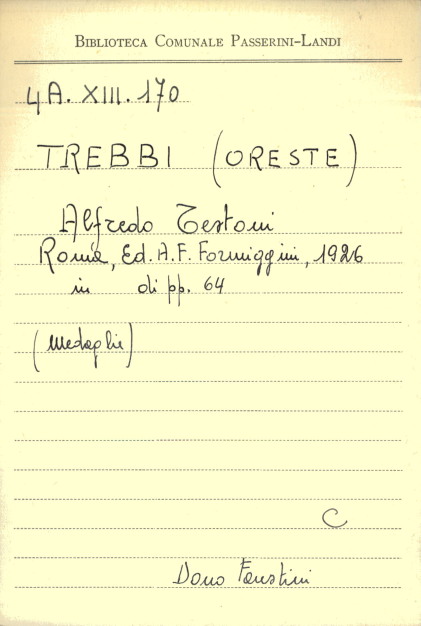 BIBLIOTECA COMUNALE PASSERINI-LANDI
4A. XIII. 170
TREBBI (ORESTE)
Alfredo Testoni
Roma, Ed. A. F. Formiggini, 1926
in di pp. 64
(Medaglie)
C
Dono Faustini